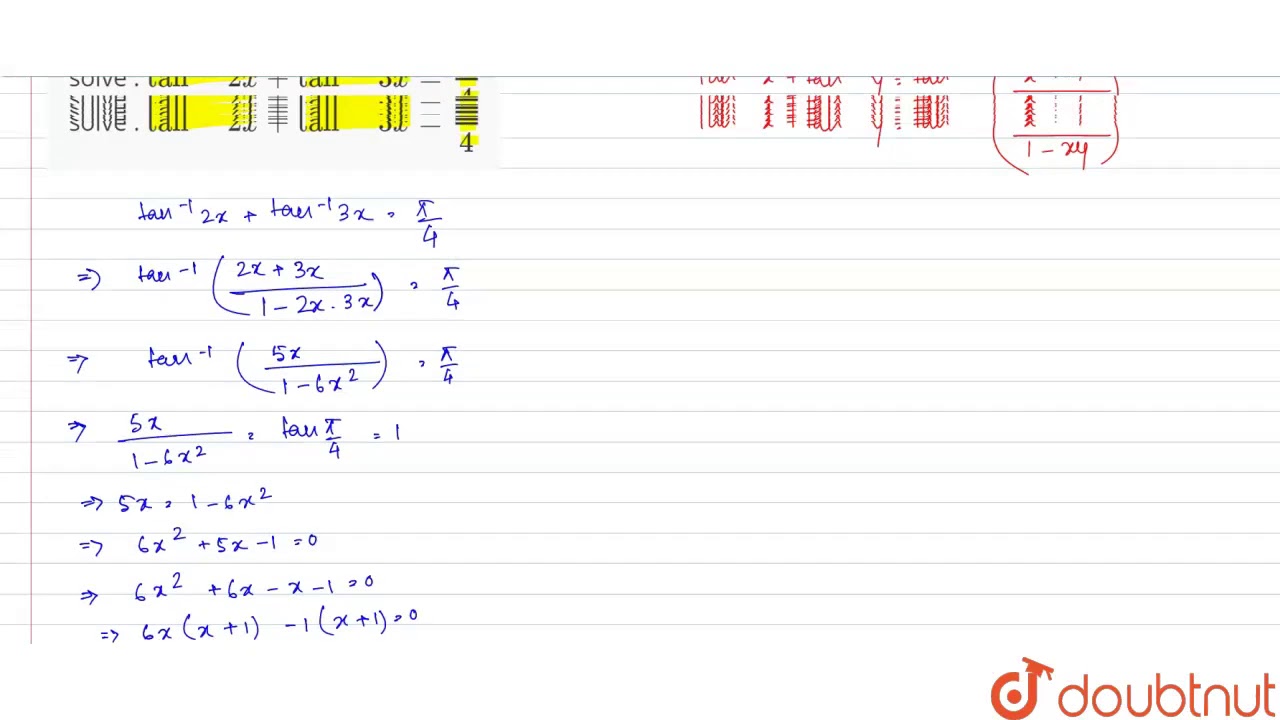 solve : tan 2x + tan 3x =
4
1 - xy
tan⁻¹ 2x + tan⁻¹ 3x = π/4
=> tan⁻¹ ( (2x + 3x)/(1 - 2x . 3x) ) = π/4
=> tan⁻¹ ( 5x/(1 - 6x²) ) = π/4
=> 5x/(1 - 6x²) = tan π/4 = 1
=> 5x = 1 - 6x²
=> 6x² + 5x - 1 = 0
=> 6x² + 6x - x - 1 = 0
=> 6x (x + 1) - 1 (x + 1) = 0
doubtnut